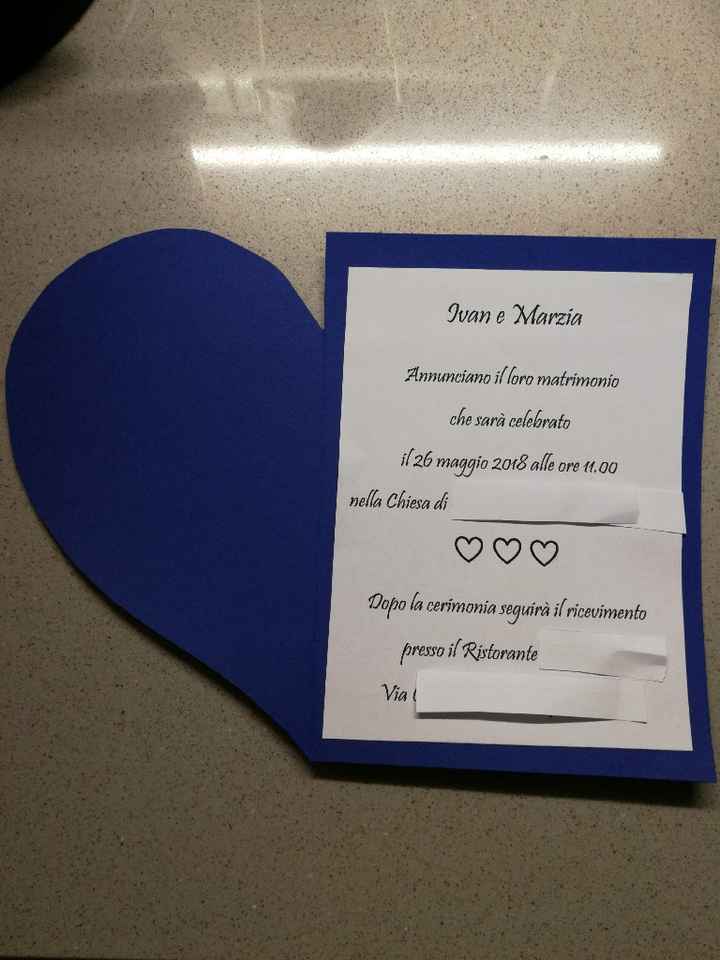 Ivan e Marzia
Annunciano il loro matrimonio
che sarà celebrato
il 26 maggio 2018 alle ore 11.00
nella Chiesa di
Dopo la cerimonia seguirà il ricevimento
presso il Ristorante
Via